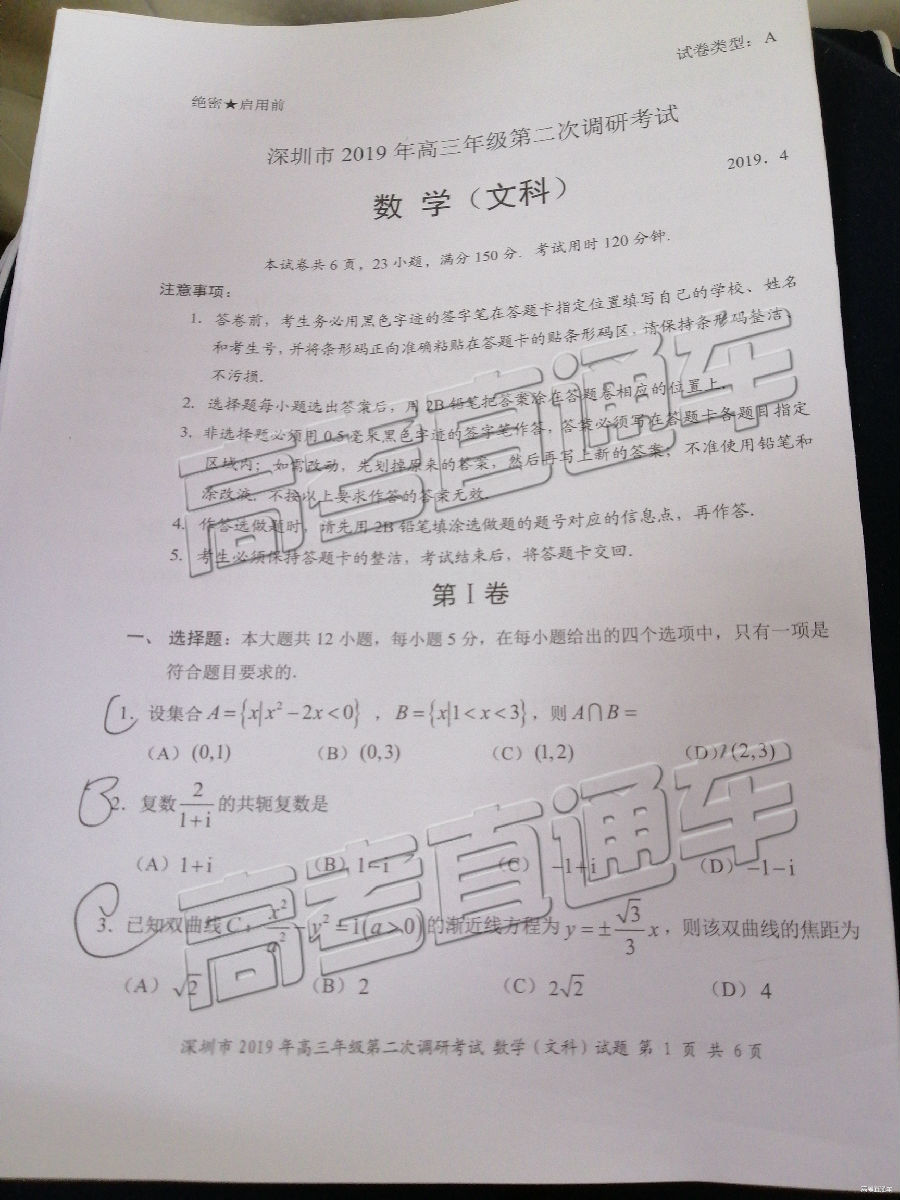 试卷类型：A
绝密★启用前
深圳市 2019 年高三年级第二次调研考试
数 学（文科）
2019．4
本试卷共 6 页，23 小题，满分 150 分．考试用时 120 分钟．
注意事项：
1．答卷前，考生务必用黑色字迹的签字笔在答题卡指定位置填写自己的学校、姓名
和考生号，并将条形码正向准确粘贴在答题卡的贴条形码区，请保持条形码整洁、
不污损．
2．选择题每小题选出答案后，用 2B 铅笔把答案涂在答题卷相应的位置上．
3．非选择题必须用 0.5 毫米黑色字迹的签字笔作答，答案必须写在答题卡各题目指定
区域内；如需改动，先划掉原来的答案，然后再写上新的答案；不准使用铅笔和
涂改液．不按以上要求作答的答案无效．
4．作答选做题时，请先用 2B 铅笔填涂选做题的题号对应的信息点，再作答．
5．考生必须保持答题卡的整洁，考试结束后，将答题卡交回．
高考直通车
第 I 卷
一、选择题：本大题共 12 小题，每小题 5 分，在每小题给出的四个选项中，只有一项是
符合题目要求的．
1．设集合 A={x|x²－2x<0}，B={x|1<x<3}，则 A∩B＝
（A）(0,1) （B）(0,3) （C）(1,2) （D）(2,3)
2．复数 2/(1+i) 的共轭复数是
（A）1+i （B）1−i （C）−1+i （D）−1−i
高考直通车
3．已知双曲线 C：x²/a²－y²=1(a>0) 的渐近线方程为 y=±√3/3 x，则该双曲线的焦距为
（A）√2 （B）2 （C）2√2 （D）4
深圳市 2019 年高三年级第二次调研考试 数学（文科）试题 第 1 页 共 6 页